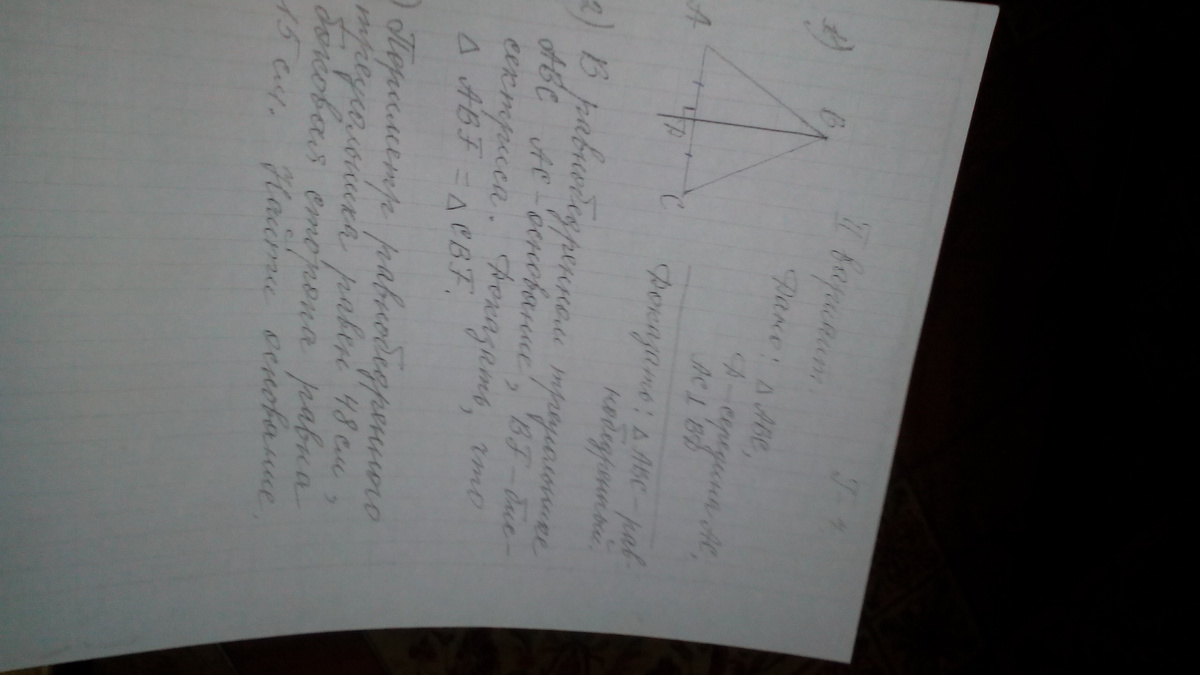 I Вариант.
1)
Дано: △ ABC,
D – середина AC,
AC ⊥ BD
Доказать: △ ABC – рав-
нобедренный.
B
A
D
C
2) В равнобедренном треугольнике
ABC AC – основание, BF – бис-
сектриса. Доказать, что
△ ABF = △ CBF.
) Периметр равнобедренного
треугольника равен 48 см,
боковая сторона равна
15 см. Найти основание.